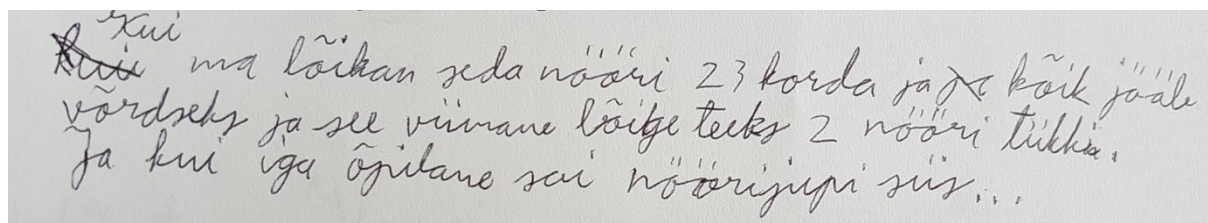 Kui
ma lõikan seda nööri 23 korda ja kõik jääk
võrdseks ja see viimane lõige teeks 2 nööri tükki.
Ja kui iga õpilane sai nöörijupi siis...